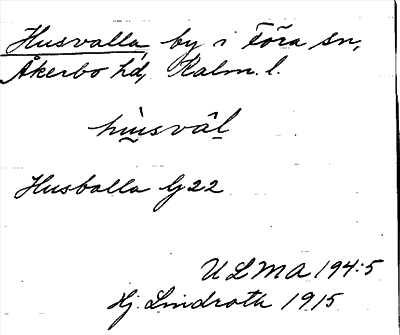 Husvalla, by i Föra sn,
Åkerbo hd, Kalm. l.
hùsväl
Husballa G 22
ULMA 194:5
Hj. Lindroth 1915